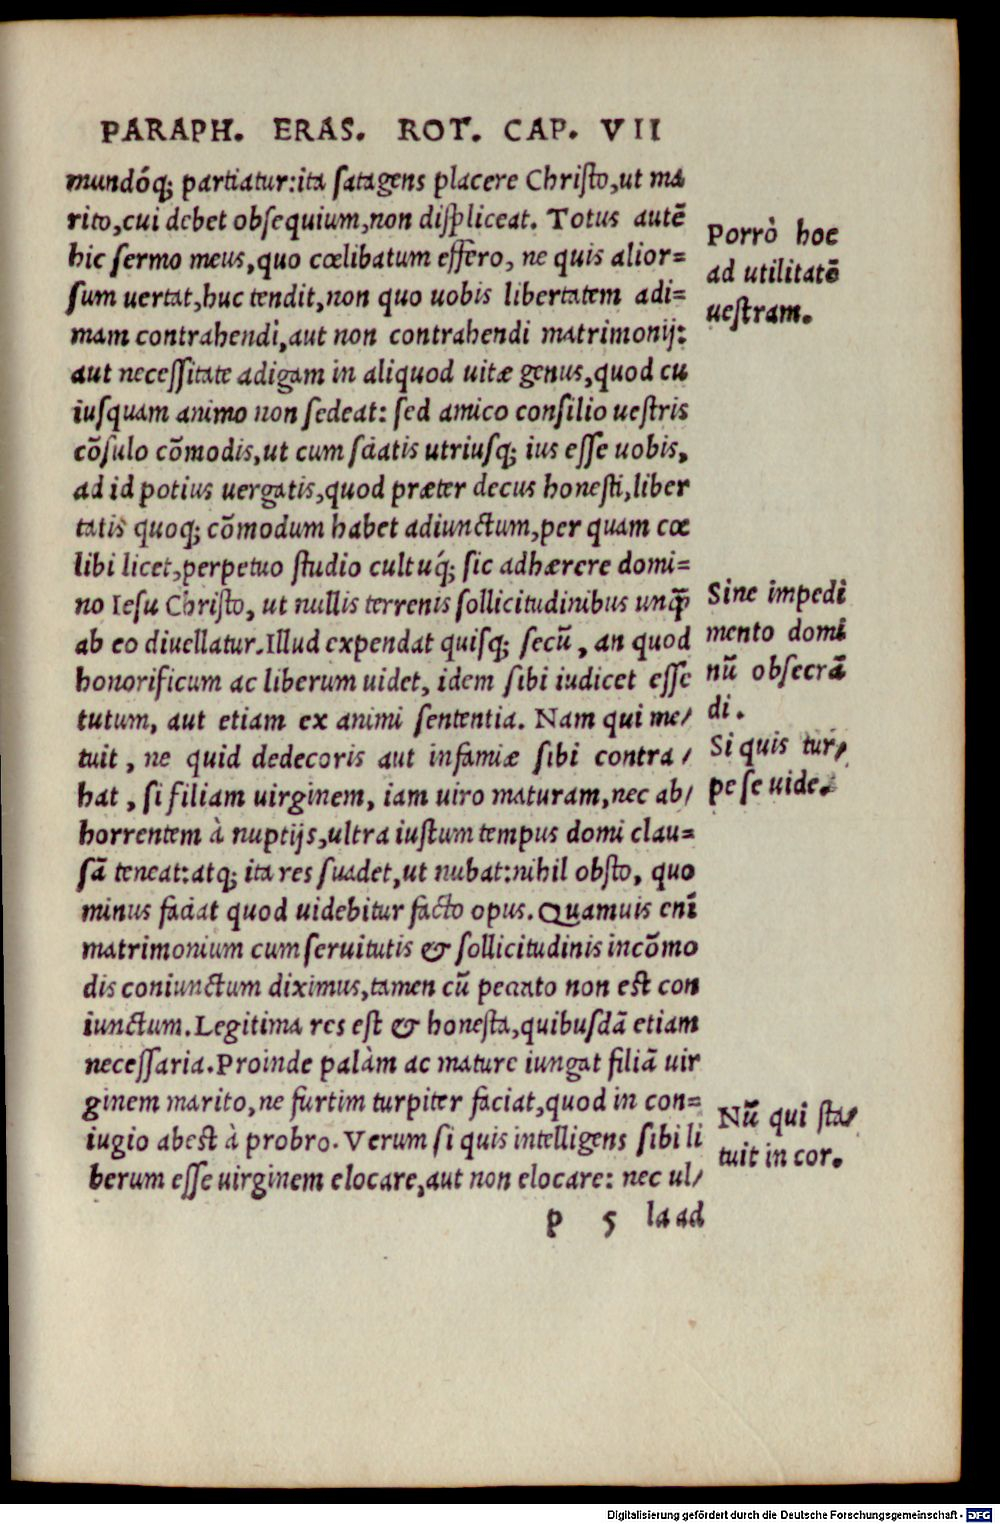 PARAPH. ERAS. ROT. CAP. VII
mundóq; partiatur:ita satagens placere Christo,ut ma
rito,cui debet obsequium,non displiceat. Totus autē
hic sermo meus,quo cœlibatum effero, ne quis alior=
sum uertat,huc tendit,non quo uobis libertatem adi=
mam contrahendi,aut non contrahendi matrimonij:
aut necessitate adigam in aliquod uitæ genus,quod cu
iusquam animo non sedeat: sed amico consilio uestris
cōsulo cōmodis,ut cum sciatis utriusq; ius esse uobis,
ad id potius uergatis,quod præter decus honesti,liber
tatis quoq; cōmodum habet adiunctum,per quam cœ
libi licet,perpetuo studio cultuq́; sic adhærere domi=
no Iesu Christo, ut nullis terrenis sollicitudinibus unq̃
ab eo diuellatur.Illud expendat quisq; secū, an quod
honorificum ac liberum uidet, idem sibi iudicet esse
tutum, aut etiam ex animi sententia. Nam qui me/
tuit, ne quid dedecoris aut infamiæ sibi contra/
hat, si filiam uirginem, iam uiro maturam,nec ab/
horrentem à nuptijs,ultra iustum tempus domi clau=
sā teneat:atq; ita res suadet,ut nubat:nihil obsto, quo
minus faciat quod uidebitur facto opus. Quamuis enī
matrimonium cum seruitutis & sollicitudinis incōmo
dis coniunctum diximus,tamen cū peccato non est con
iunctum.Legitima res est & honesta,quibusdā etiam
necessaria.Proinde palàm ac mature iungat filiā uir
ginem marito,ne furtim turpiter faciat,quod in con=
iugio abest à probro. Verum si quis intelligens sibi li
berum esse uirginem elocare,aut non elocare: nec ul/
p 5 la ad
Porrò hoc
ad utilitatē
uestram.
Sine impedi
mento domi
nū obsecrā
di.
Si quis tur/
pe se uide.
Nū qui sta/
tuit in cor.
Digitalisierung gefördert durch die Deutsche Forschungsgemeinschaft - DFG